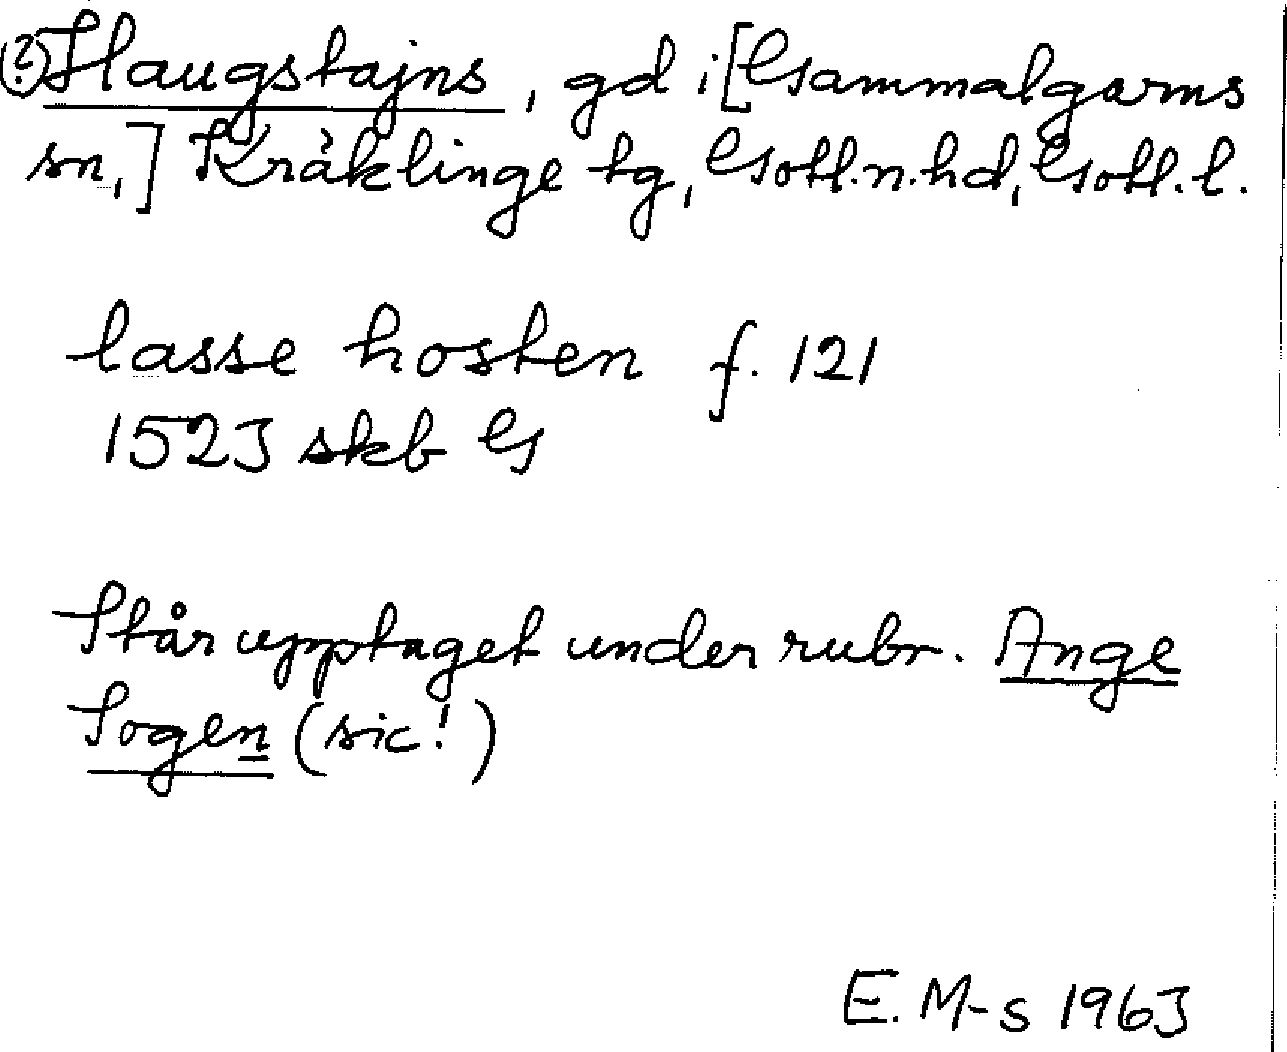 (?) Haugstajns, gd i [Gammalgarns
sn,] Kräklinge tg, Gotl.n.hd, Gotl.l.
lasse hosten f. 121
1523 skb G
Står upptaget under rubr. Ange
Sogen (sic!)
E. M-s 1963